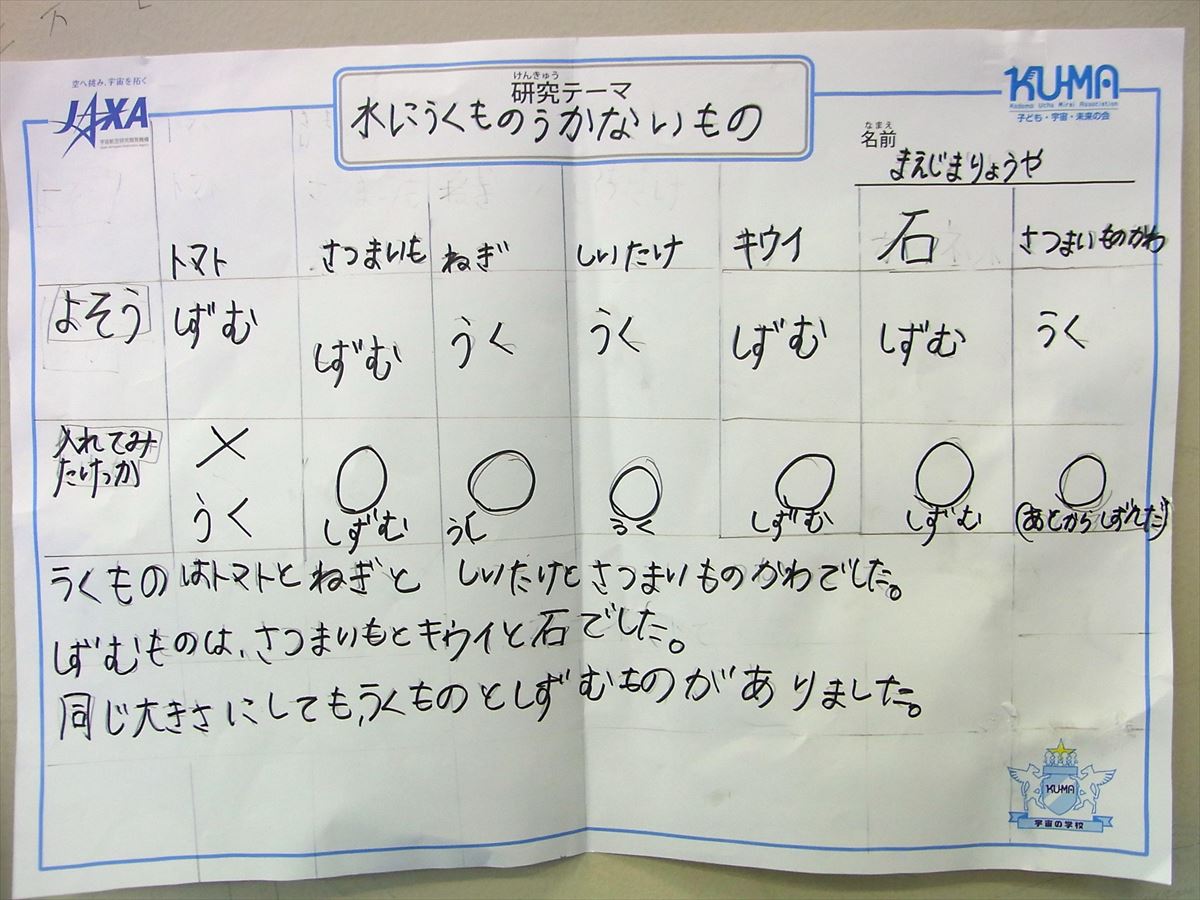 空へ挑み、宇宙を拓く
JAXA
宇宙航空研究開発機構
けんきゅう
研究テーマ
水にうくものうかないもの
KU-MA
Kodomo Uchu Mirai Association
子ども・宇宙・未来の会
なまえ
名前
まえじまりょうや
トマト さつまいも ねぎ しいたけ キウイ 石 さつまいものかわ
よそう しずむ しずむ うく うく しずむ しずむ うく
入れてみ
たけっか
× ○ ○ ○ ○ ○ ○
うく しずむ うく うく しずむ しずむ (あとからしずんだ)
うくものはトマトとねぎと しいたけとさつまいものかわでした。
しずむものは、さつまいもとキウイと石でした。
同じ大きさにしても、うくものとしずむものがありました。
KU-MA
宇宙の学校